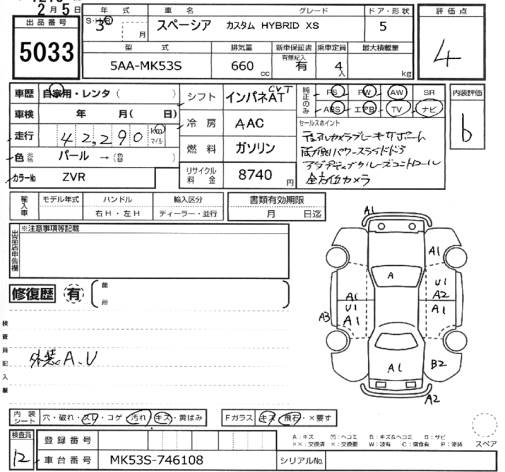 2月5日
出品番号
5033
年式 車名 グレード ドア・形状
S・H・R 3年 月 スペーシア カスタム HYBRID XS 5
型式 排気量 新車保証書 有無記入 乗車定員 最大積載量
5AA-MK53S 660cc 有 4人 kg
評価点
4
車歴 自家用・レンタ( )
車検 年 月(日)
走行 42,290 km マイル
色 パール → (色替)
カラーNo ZVR
シフト インパネAT CVT
冷房 AAC
燃料 ガソリン
リサイクル料金 8740円
純正のみ PS PW AW SR
ABS エアB TV ナビ
内装評価
b
セールスポイント
デュアルカメラブレーキサポート
両側パワースライドドア
アダプティブクルーズコントロール
全方位カメラ
輸入車 モデル年式 ハンドル 輸入区分
右H・左H ディーラー・並行
書類有効期限
月 日迄
出品店申告欄
※注意事項等記載
修復歴 有 箇所
検査員記入欄
外装A.U
A1
A1
A
A1
U1
A1
U1
A2
A1
A3
A1
B2
A2
内装シート 穴・破れ・スレ・コゲ 汚れ・キズ・黄ばみ
Fガラス キズ・飛石・×要す
A:キズ U:ヘコミ B:キズ&ヘコミ S:サビ
××:交換済 ×:交換要 W:波有 C:腐食有 P:塗装
スペア
検査員
12
登録番号
車台番号 MK53S-746108 シリアルNo.